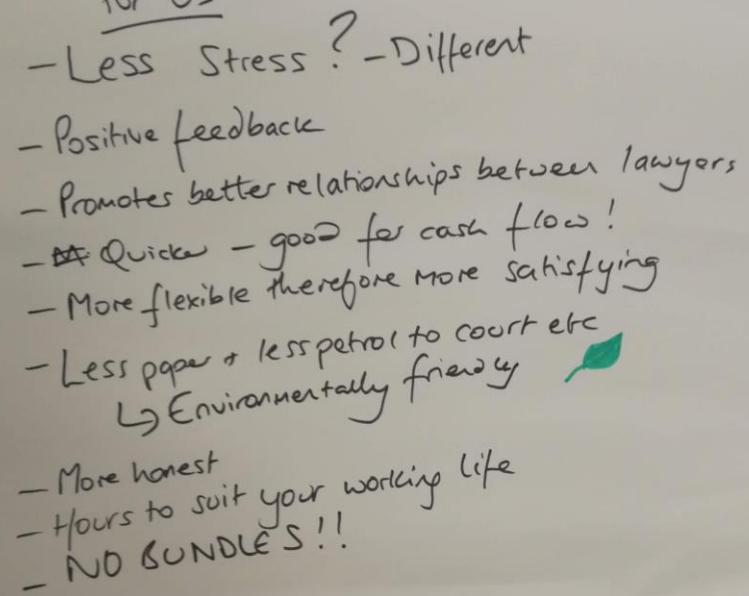 - Less Stress? - Different
- Positive feedback
- Promotes better relationships between lawyers
- Quicker - good for cash flow!
- More flexible therefore more satisfying
- Less paper + less petrol to court etc
↳ Environmentally friendly
- More honest
- Hours to suit your working life
- NO BUNDLES!!